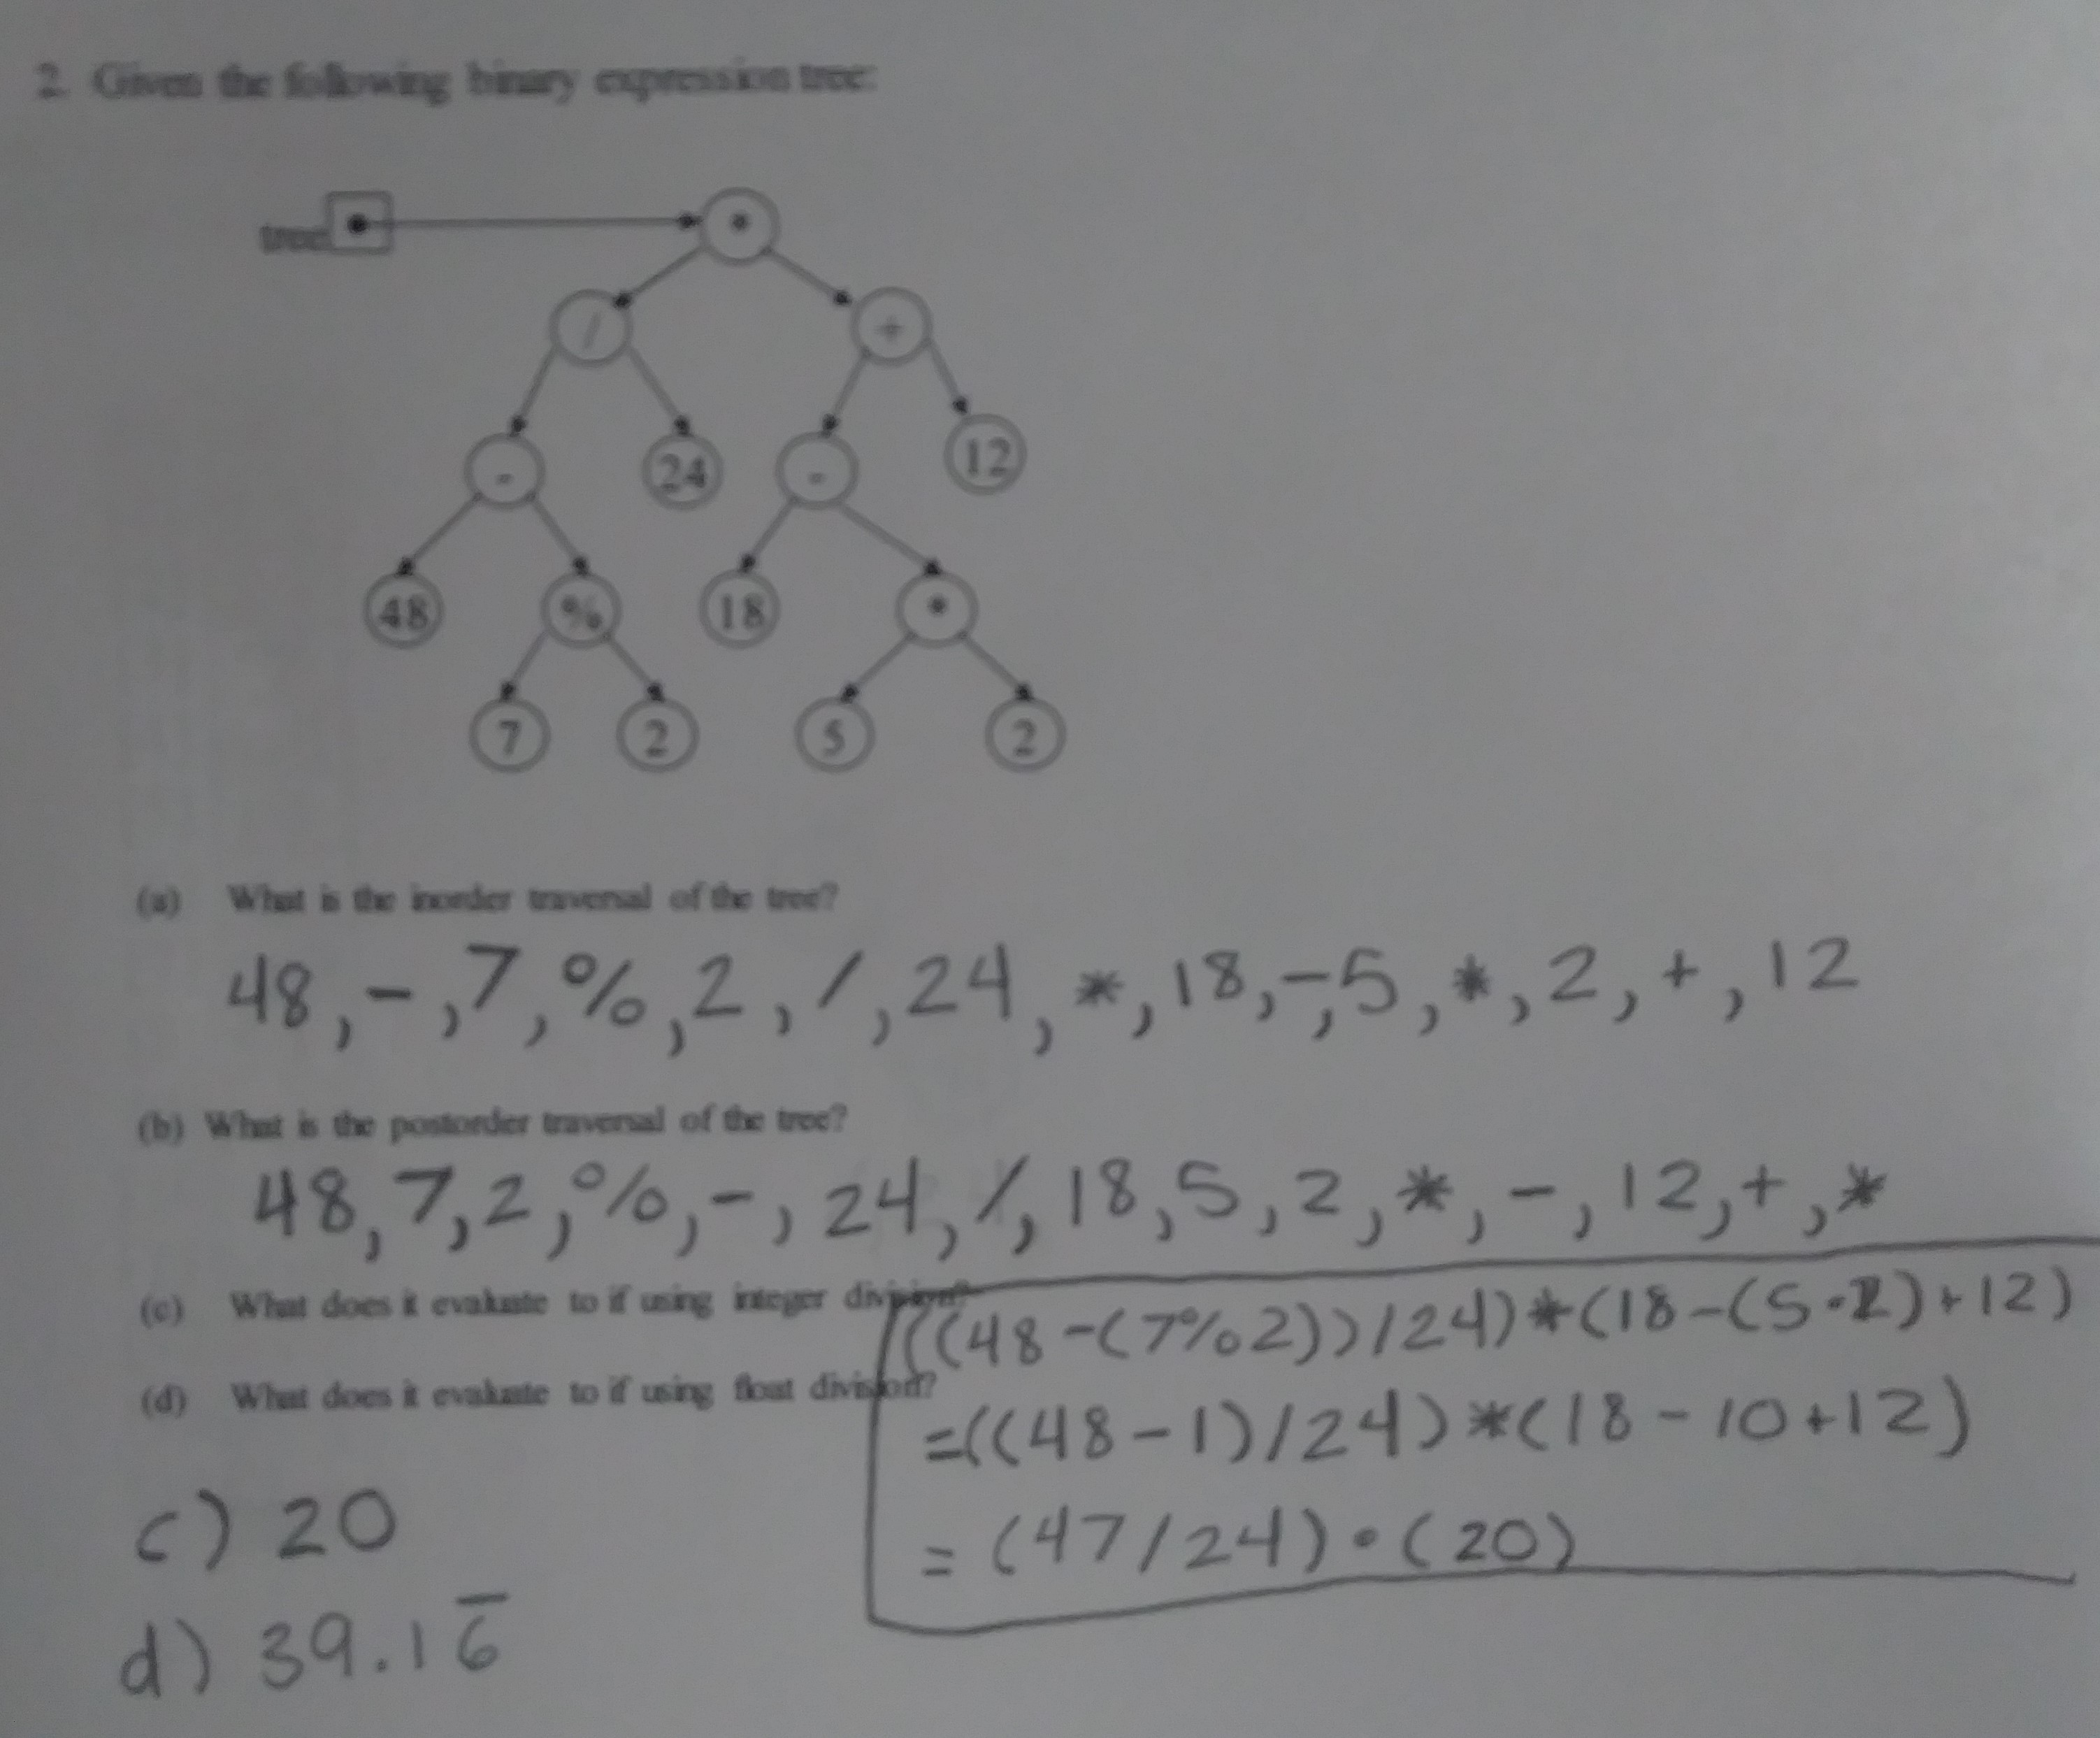 2. Given the following binary expression tree:
tree
*
/ +
- 24 - 12
48 % 18 *
7 2 5 2
(a) What is the inorder traversal of the tree?
48, -, 7, %, 2, /, 24, *, 18, -, 5, *, 2, +, 12
(b) What is the postorder traversal of the tree?
48, 7, 2, %, -, 24, /, 18, 5, 2, *, -, 12, +, *
(c) What does it evaluate to if using integer division?
(d) What does it evaluate to if using float division?
(((48-(7%2))/24)*(18-(5•2)+12)
=((48-1)/24)*(18-10+12)
=(47/24)•(20)
c) 20
d) 39.16̅